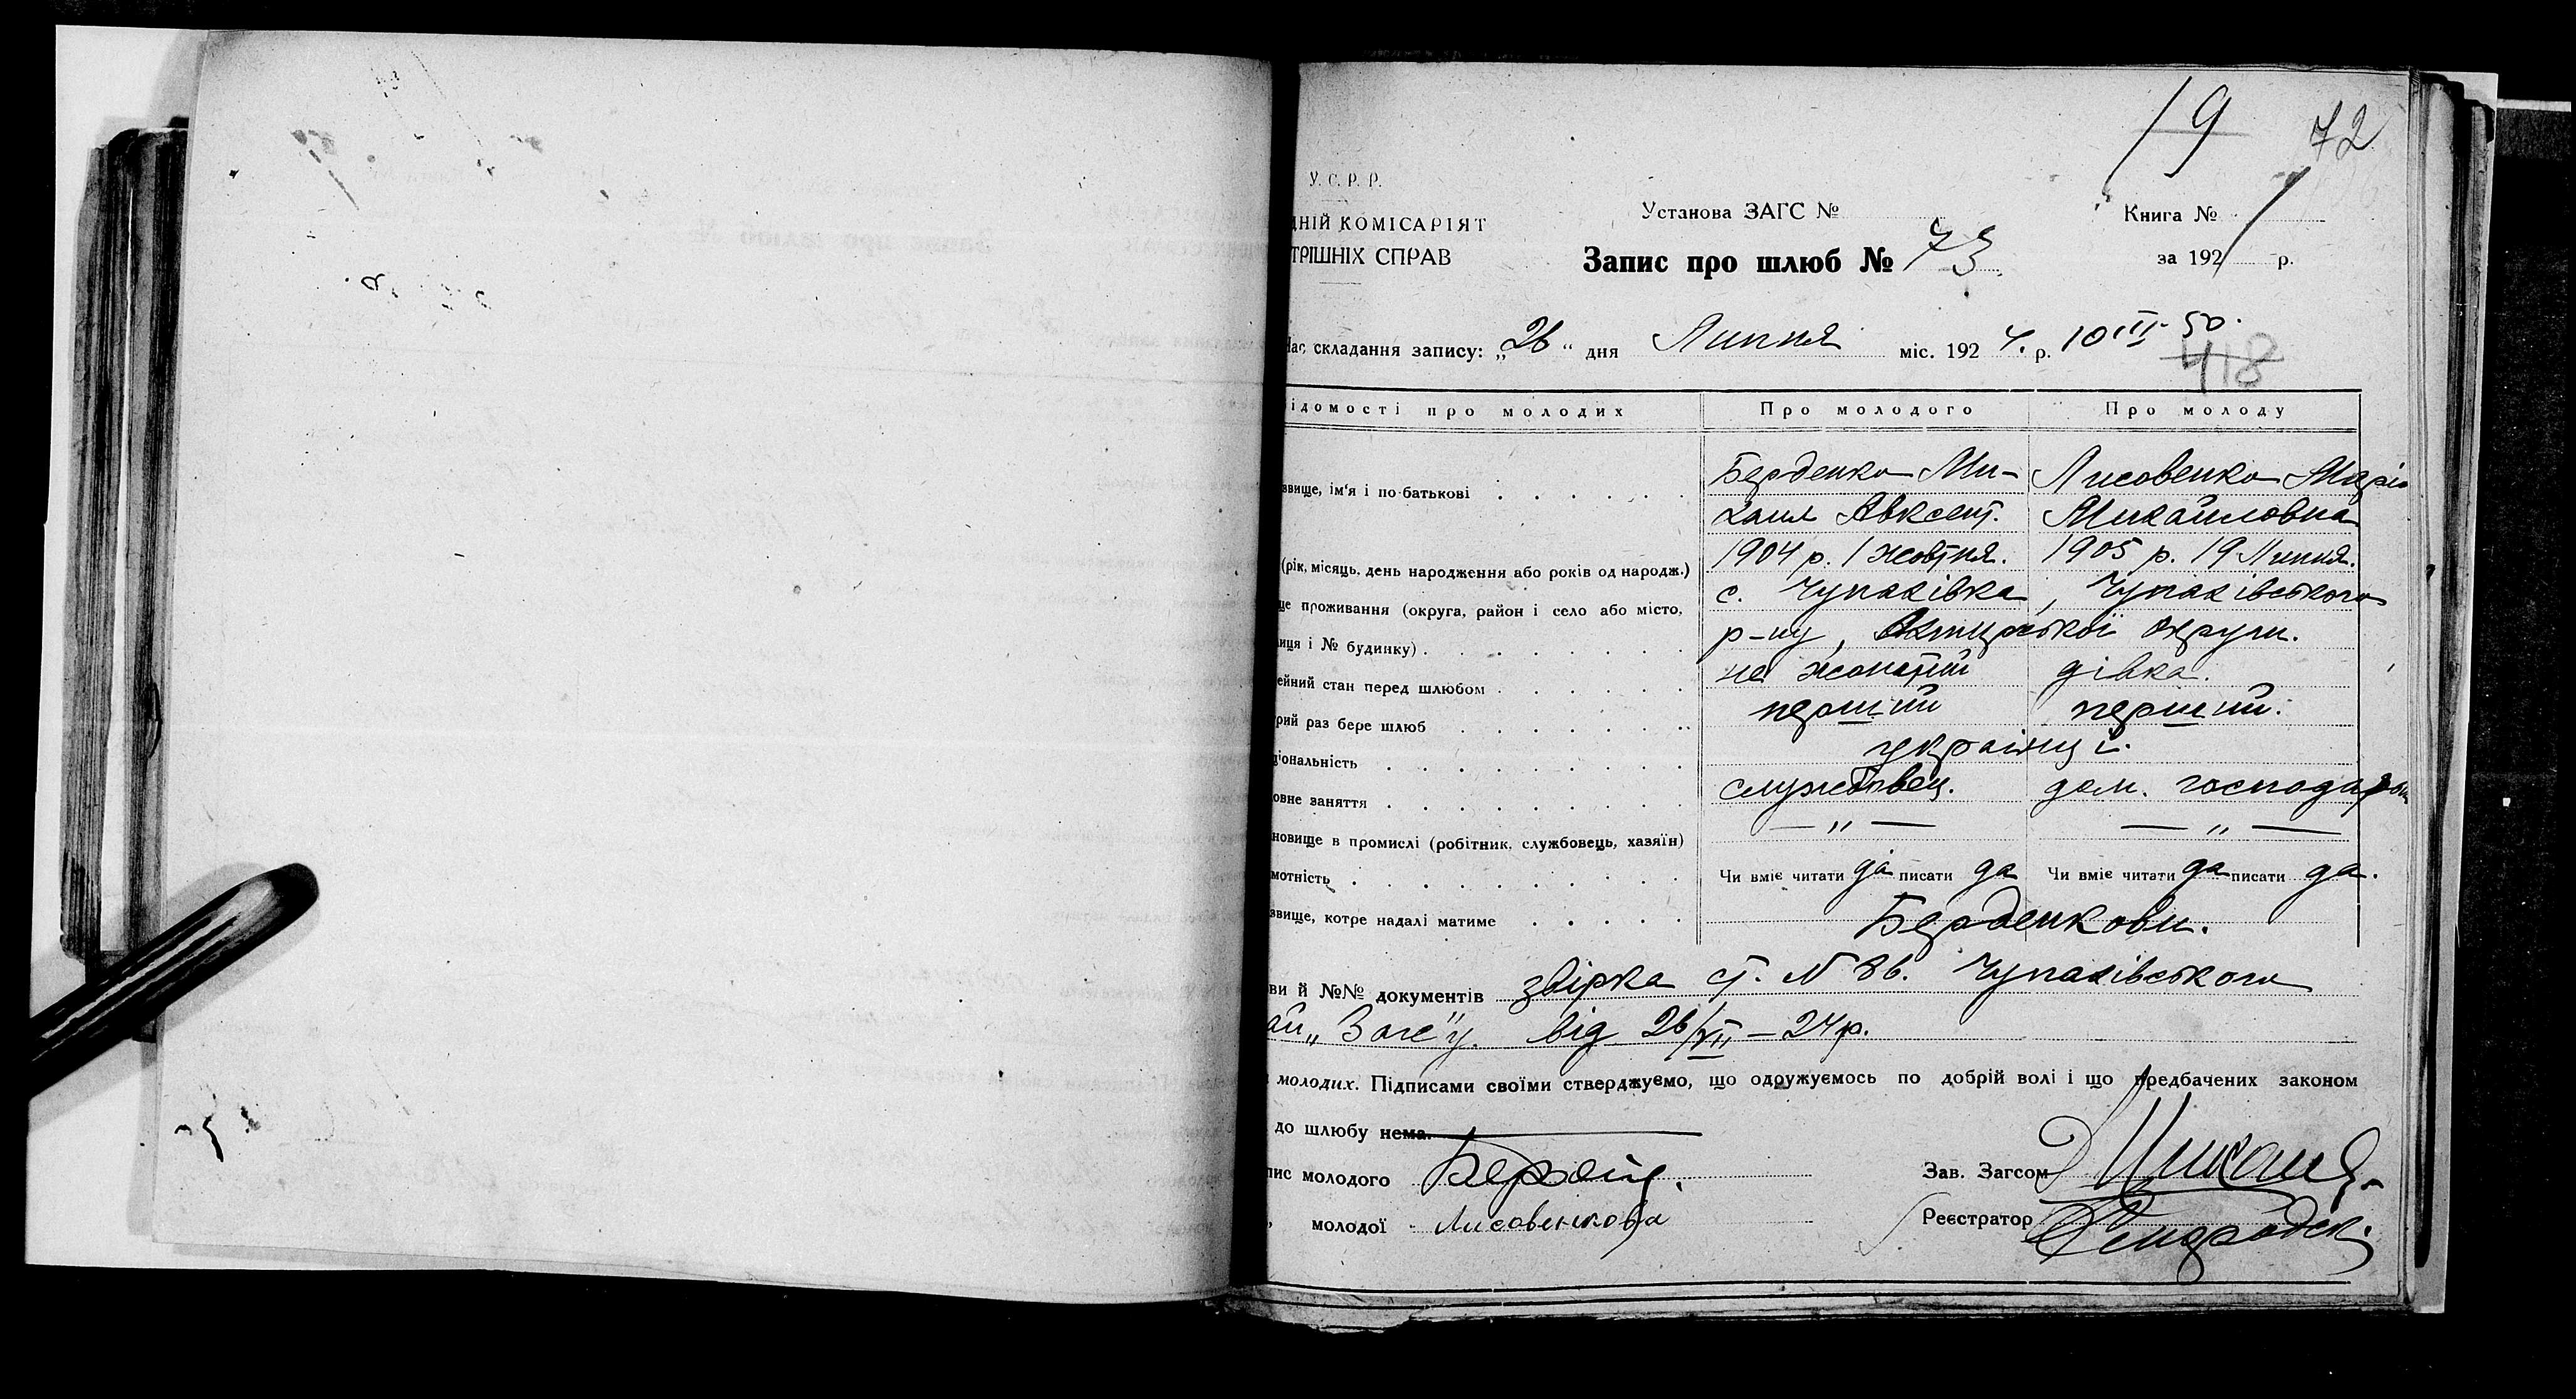 19 72
У. С. Р. Р.
ДНІЙ КОМІСАРІЯТ Установа ЗАГС № Книга № 1
ТРІШНІХ СПРАВ Запис про шлюб № 73 за 192 р.
Час складання запису: „26“ дня Липня міс. 192 4. р. 10 III 50.
418
ідомості про молодих Про молодого Про молоду
Берденко Ми- Лисовенко Марія
звище, ім'я і по-батькові
хаил Авксент. Михайловна
1904 р. 1 жовтня. 1905 р. 19 Липня.
(рік, місяць, день народження або років од народж.)
це проживання (округа, район і село або місто, с. Чупахівка, Чупахівського
иця і № будинку) р-ну, Охтирської округи.
ейний стан перед шлюбом не жонатий дівка.
рий раз бере шлюб перший перший.
ціональність українці.
овне заняття службовец. дом. господар
новище в промислі (робітник, службовець, хазяїн) — „ — — „ —
мотність Чи вміє читати да писати да Чи вміє читати да писати да.
звище, котре надалі матиме Берденкови.
ви й №№ документів звірка ст. N 86. Чупахівського
ай „Загс"у. від 26/VII – 24 р.
молодих. Підписами своїми стверджуємо, що одружуємось по добрій волі і що предбачених законом
до шлюбу нема.
пис молодого Зав. Загсом
„ молодої Лисовенкова Реєстратор